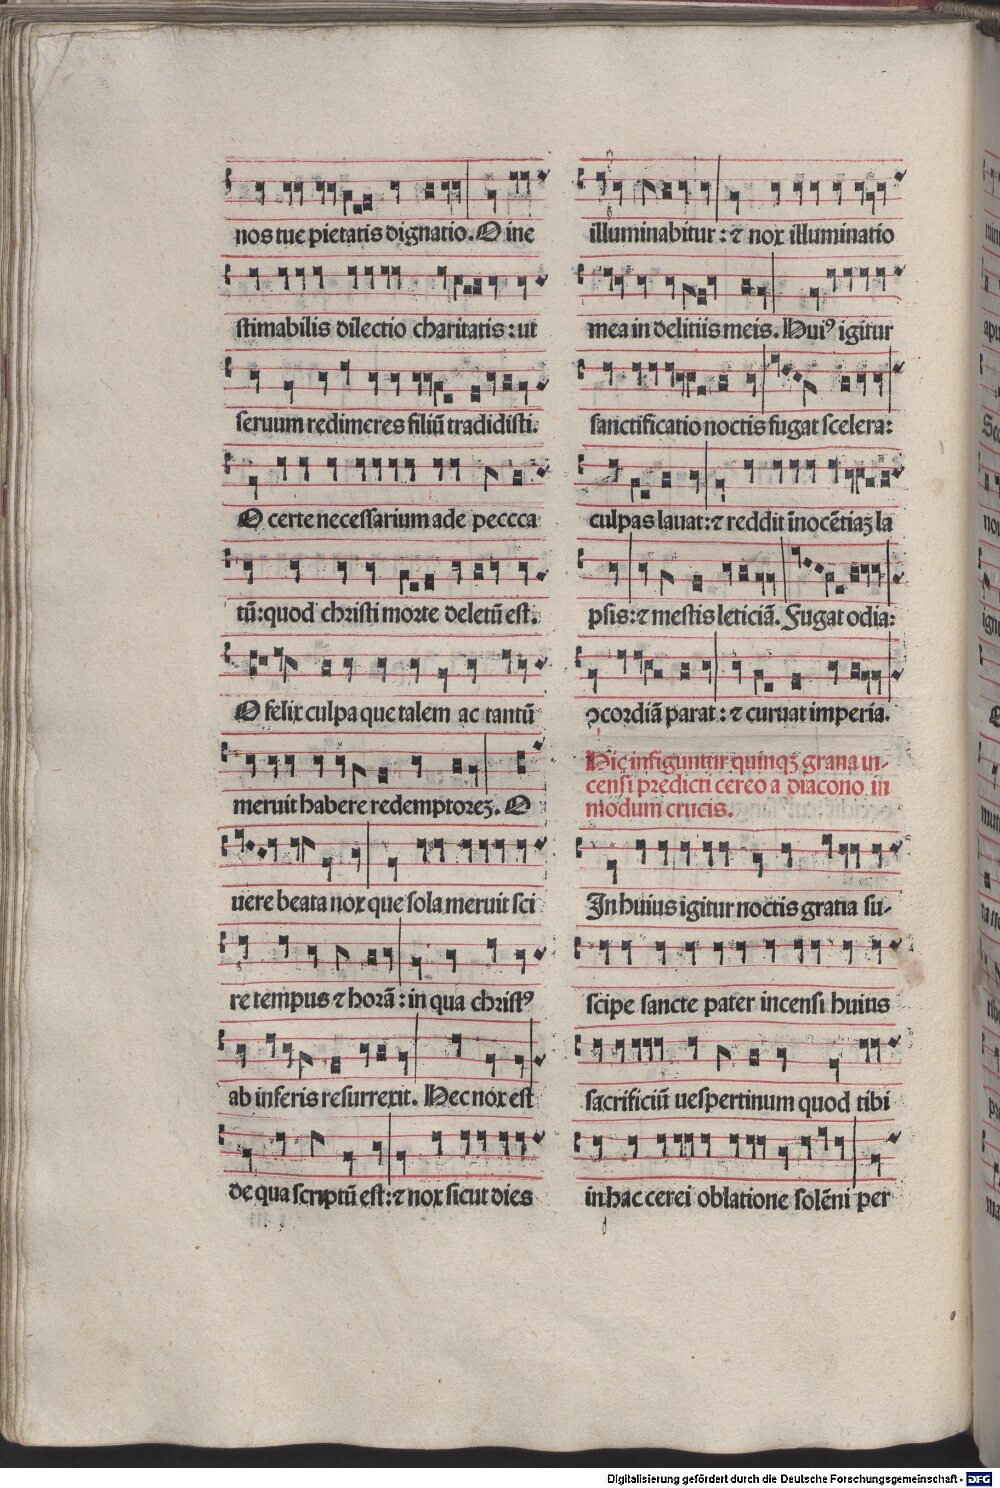 nos tue pietatis dignatio. O ine
stimabilis dilectio charitatis: ut
seruum redimeres filiū tradidisti.
O certe necessarium ade peccca
tū: quod christi morte deletū est.
O felix culpa que talem ac tantū
meruit habere redemptoreꝫ. O
uere beata nox que sola meruit sci
re tempus ⁊ horā: in qua christꝰ
ab inferis resurrexit. Hec nox est
de qua scriptū est: ⁊ nox sicut dies
illuminabitur: ⁊ nox illuminatio
mea in delitiis meis. Huiꝰ igitur
sanctificatio noctis fugat scelera:
culpas lauat: ⁊ reddit īnocētiaꝫ la
psis: ⁊ mestis leticiā. Fugat odia:
ꝯcordiā parat: ⁊ curuat imperia.
Hic infiguntur quinqꝫ grana in-
censi predicti cereo a diacono in
modum crucis.
In huius igitur noctis gratia su-
scipe sancte pater incensi huius
sacrificiū uespertinum quod tibi
in hac cerei oblatione solēni per
Digitalisierung gefördert durch die Deutsche Forschungsgemeinschaft - DFG